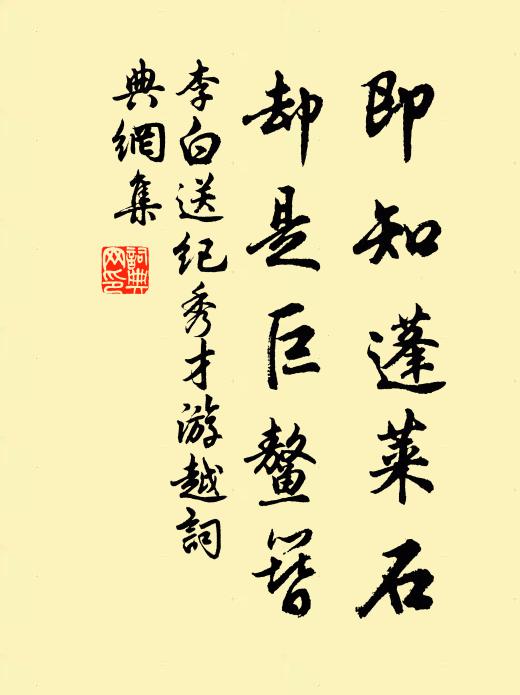 即知蓬莱石
却是巨鳌簪
李白送纪秀才游越词
典網集
詞典網印